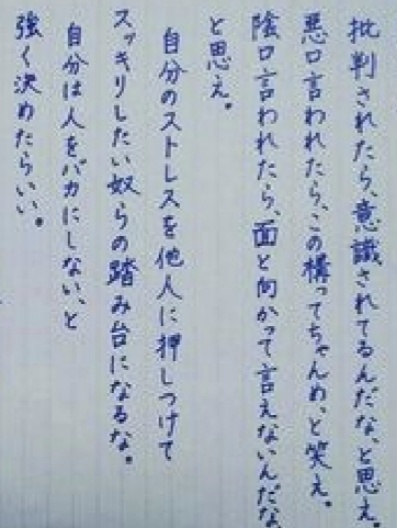 批判されたら、意識されてるんだな、と思え。
悪口言われたら、この構ってちゃんめ、と笑え。
陰口言われたら、面と向かって言えないんだな
と思え。
自分のストレスを他人に押しつけて
スッキリしたい奴らの踏み台になるな。
自分は人をバカにしない、と
強く決めたらいい。